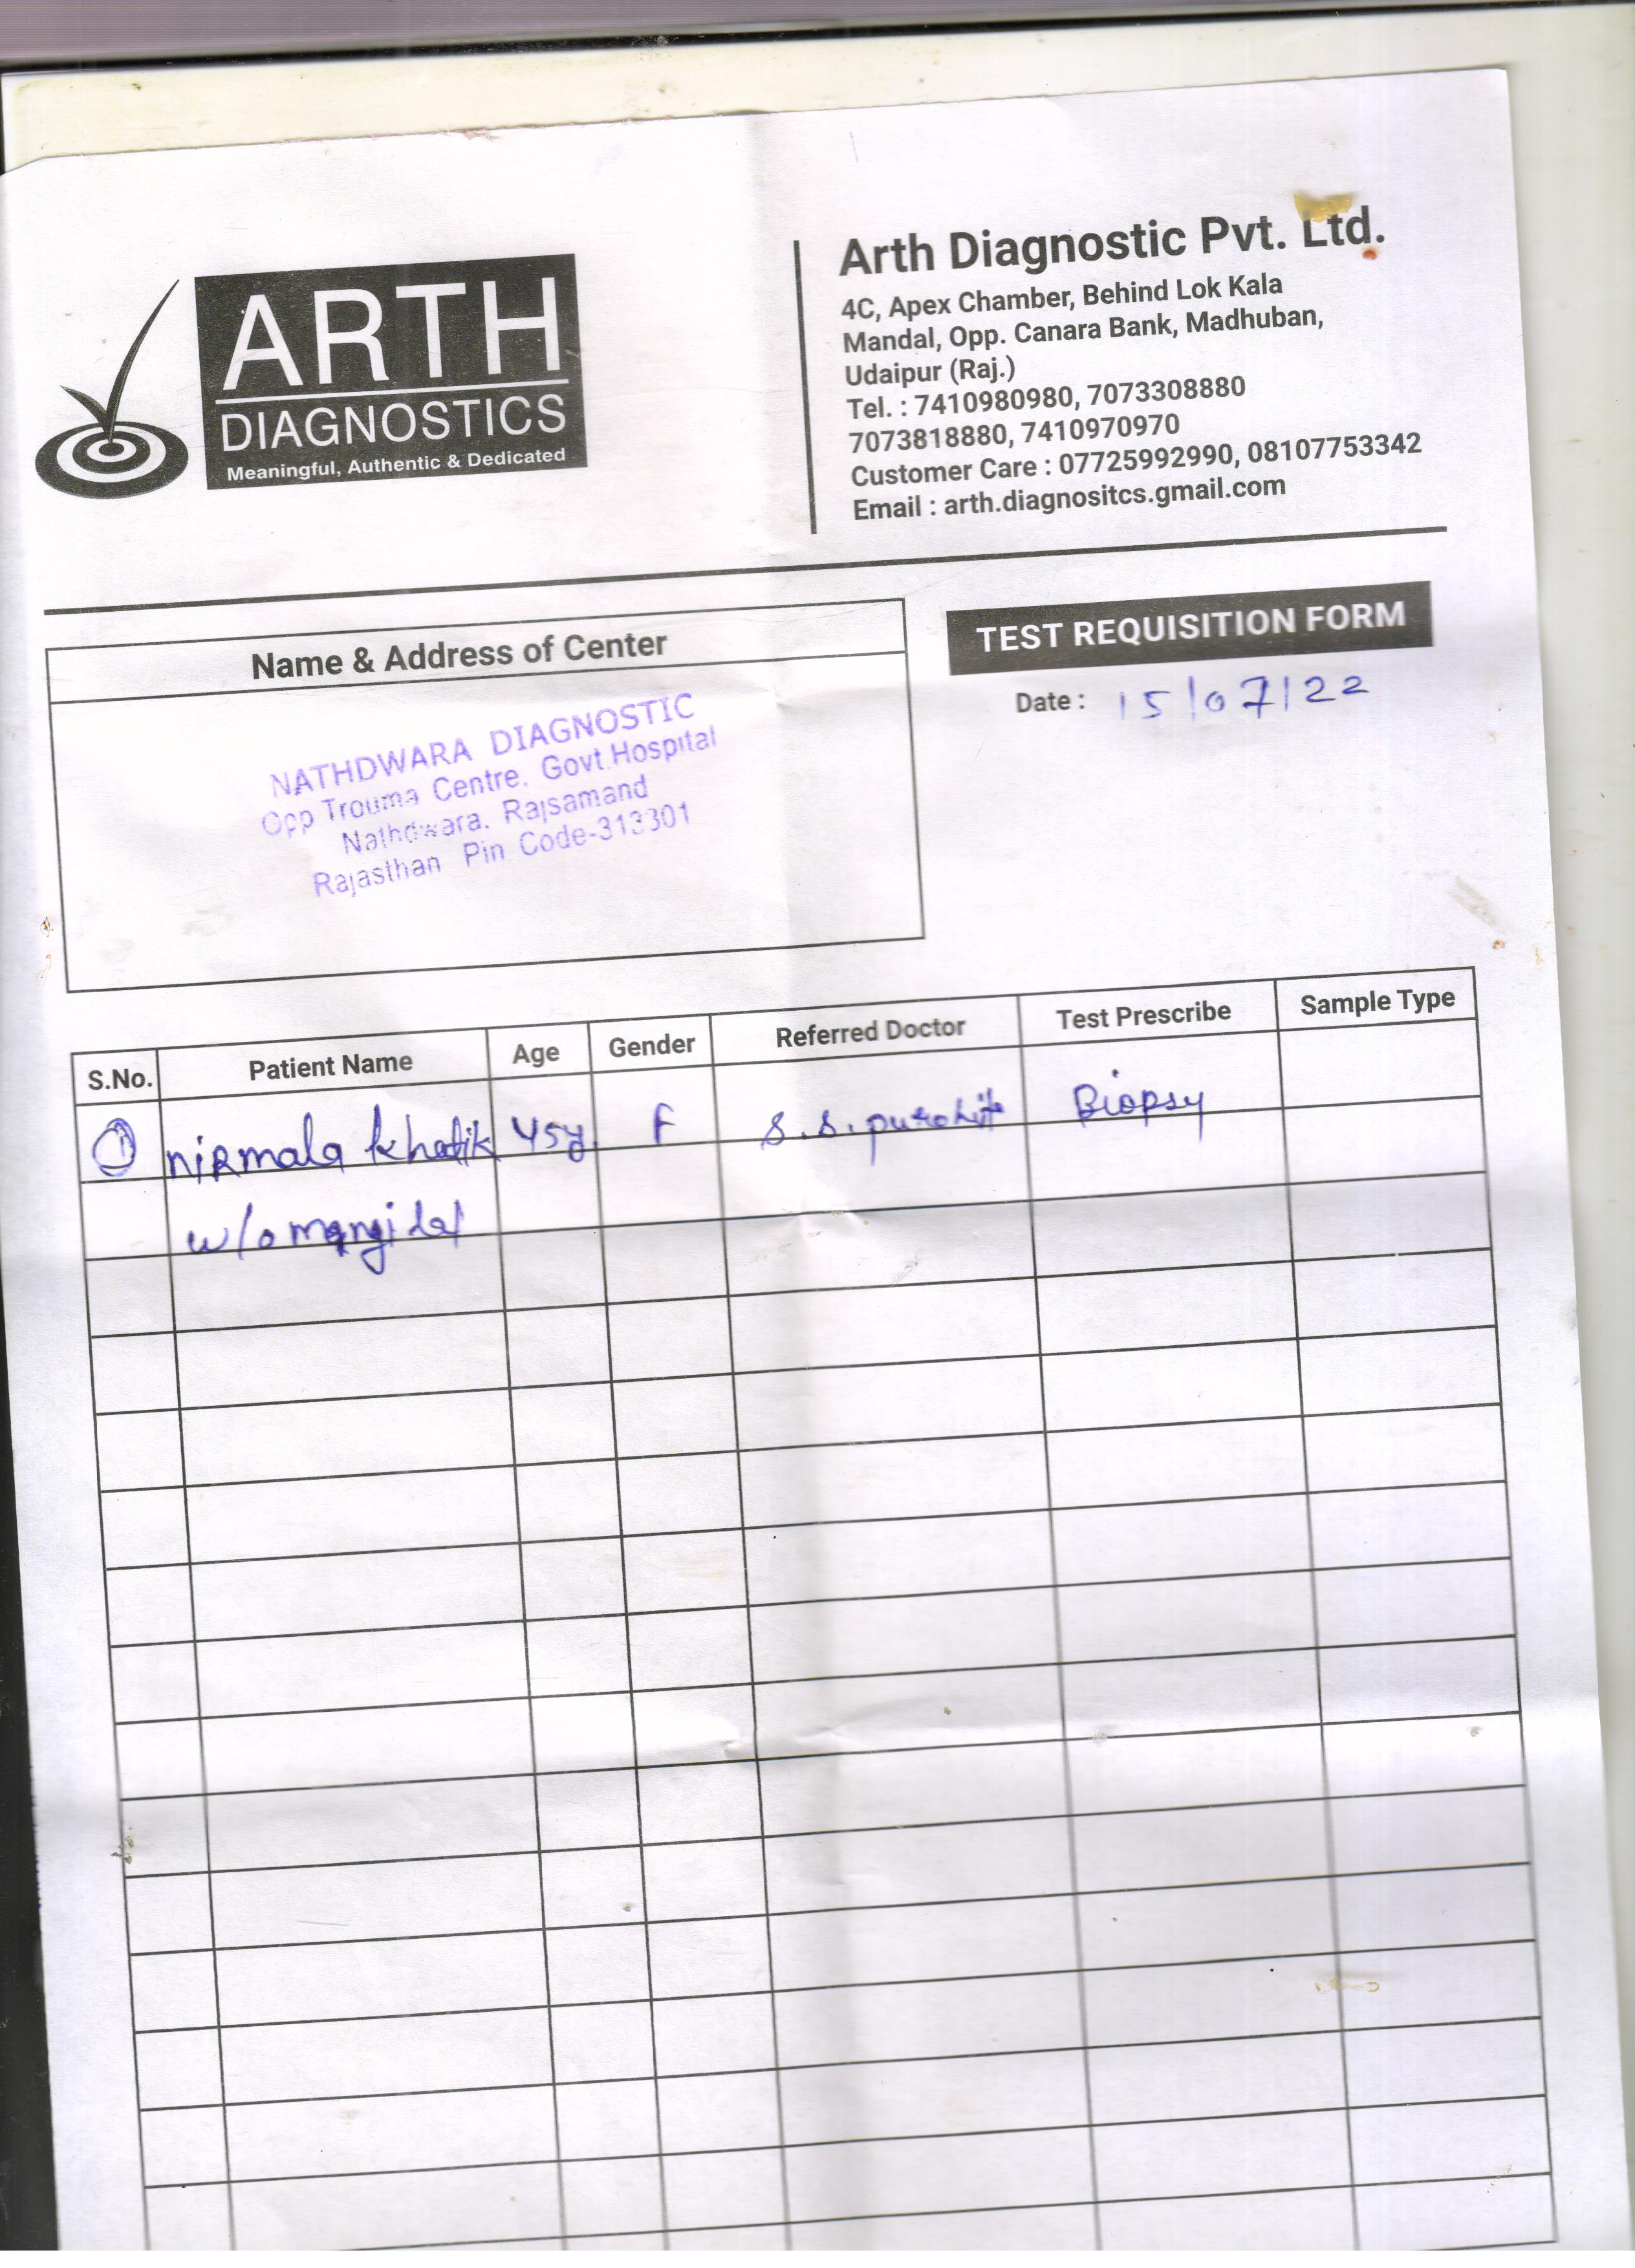 ARTH
DIAGNOSTICS
Meaningful, Authentic & Dedicated
Arth Diagnostic Pvt. Ltd.
4C, Apex Chamber, Behind Lok Kala
Mandal, Opp. Canara Bank, Madhuban,
Udaipur (Raj.)
Tel. : 7410980980, 7073308880
7073818880, 7410970970
Customer Care : 07725992990, 08107753342
Email : arth.diagnositcs.gmail.com
Name & Address of Center
NATHDWARA DIAGNOSTIC
Opp Trouma Centre. Govt.Hospital
Nathdwara. Rajsamand
Rajasthan Pin Code-313301
TEST REQUISITION FORM
Date : 15/07/22
S.No. Patient Name Age Gender Referred Doctor Test Prescribe Sample Type
1 nirmala khatik 45y. F S.S. purohit Biopsy
w/o mangi lal